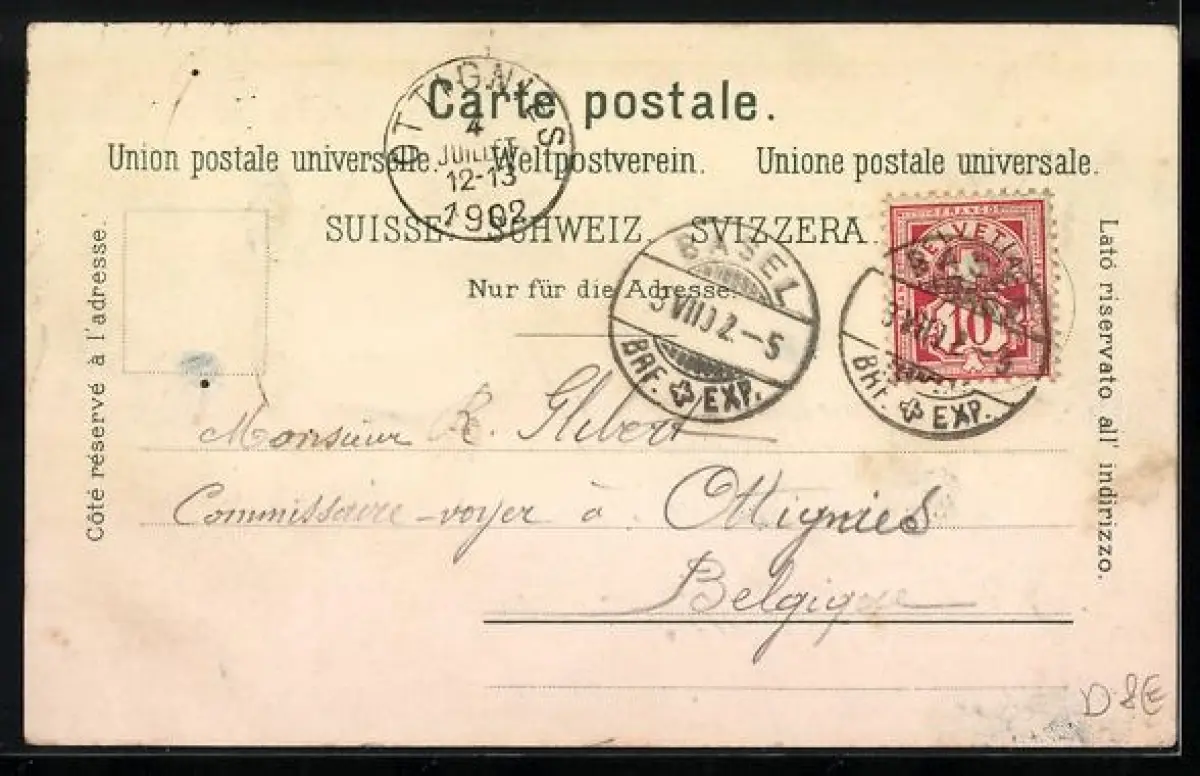 Carte postale.
OTTIGNIES
4
JUILLET
12-13
1902
Union postale universelle. Weltpostverein. Unione postale universale.
SUISSE. SCHWEIZ. SVIZZERA.
Nur für die Adresse.
Côté réservé à l'adresse.
Lató riservato all' indirizzo.
FRANCO
HELVETIA
10
BASEL
3 VII 02.-5
BRF. EXP.
BASEL
3 VII 02.-5
BRF. EXP.
Monsieur R. Glibert
Commissaire-voyer à Ottignies
Belgique
D 8E